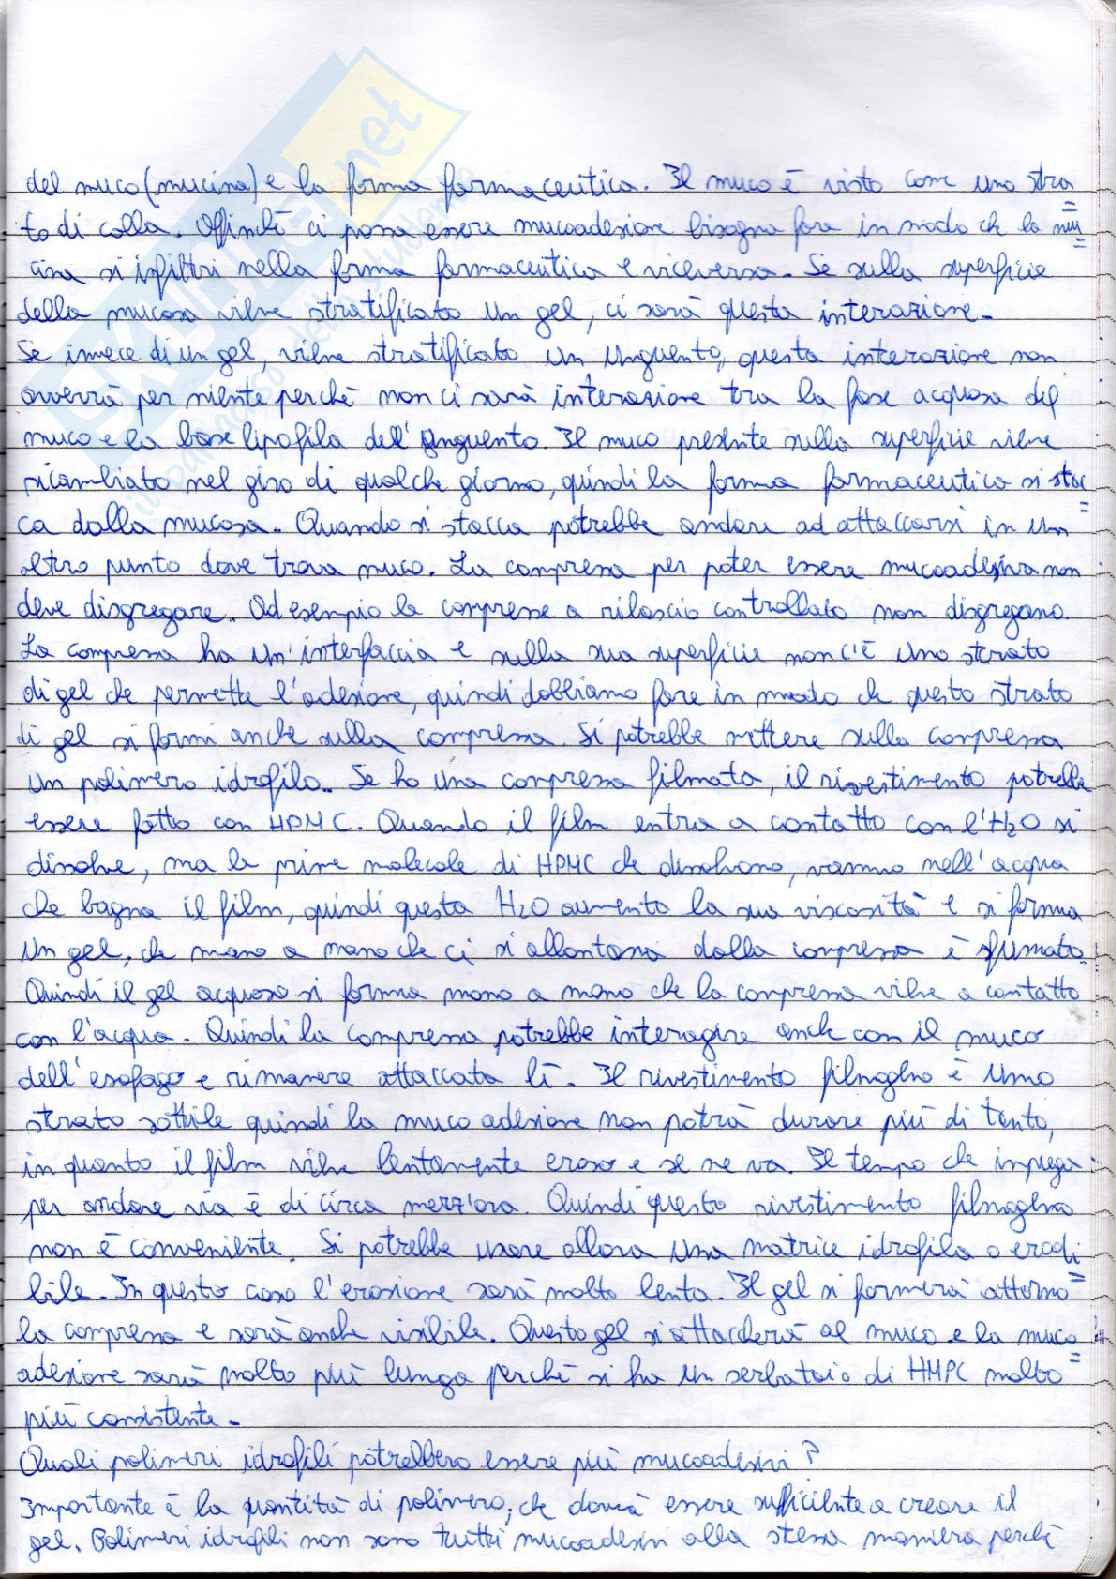 del muco (mucina) e la forma farmaceutica. Il muco è visto come uno stra
to di colla. Affinchè ci possa essere mucoadesione bisogna fare in modo che la mu
cina si infiltri nella forma farmaceutica e viceversa. Se sulla superficie
della mucosa viene stratificato un gel, ci sarà questa interazione.
Se invece di un gel, viene stratificato un unguento, questa interazione non
avverrà per niente perchè non ci sarà interazione tra la fase acquosa del
muco e la base lipofila dell'unguento. Il muco presente sulla superficie viene
ricambiato nel giro di qualche giorno, quindi la forma farmaceutica si stac
ca dalla mucosa. Quando si stacca potrebbe andare ad attaccarsi in un
altro punto dove trova muco. La compressa per poter essere mucoadesiva non
deve disgregare. Ad esempio le compresse a rilascio controllato non disgregano.
La compressa ha un'interfaccia e sulla sua superficie non c'è uno strato
di gel che permette l'adesione, quindi dobbiamo fare in modo che questo strato
di gel si formi anche sulla compressa. Si potrebbe mettere sulla compressa
un polimero idrofilo. Se ho una compressa filmata, il rivestimento potrebbe
essere fatto con HPMC. Quando il film entra a contatto con l'H2O si
dissolve, ma le prime molecole di HPMC che dissolvono, vanno nell'acqua
che bagna il film, quindi questa H2O aumenta la sua viscosità e si forma
un gel, che mano a mano che ci si allontana dalla compressa è sfumato.
Quindi il gel acquoso si forma mano a mano che la compressa viene a contatto
con l'acqua. Quindi la compressa potrebbe interagire anche con il muco
dell'esofago e rimanere attaccata lì. Il rivestimento filmogeno è uno
strato sottile quindi la muco adesione non potrà durare più di tanto,
in quanto il film viene lentamente eroso e se ne va. Il tempo che impiega
per andare via è di circa mezz'ora. Quindi questo rivestimento filmogeno
non è conveniente. Si potrebbe usare allora una matrice idrofila o erodi
bile. In questo caso l'erosione sarà molto lenta. Il gel si formerà attorno
la compressa e sarà anche visibile. Questo gel si attaccherà al muco e la muco
adesione sarà molto più lunga perchè si ha un serbatoio di HMPC molto
più consistente.
Quali polimeri idrofili potrebbero essere più mucoadesivi?
Importante è la quantità di polimero, che dovrà essere sufficiente a creare il
gel. Polimeri idrofili non sono tutti mucoadesivi alla stessa maniera perchè